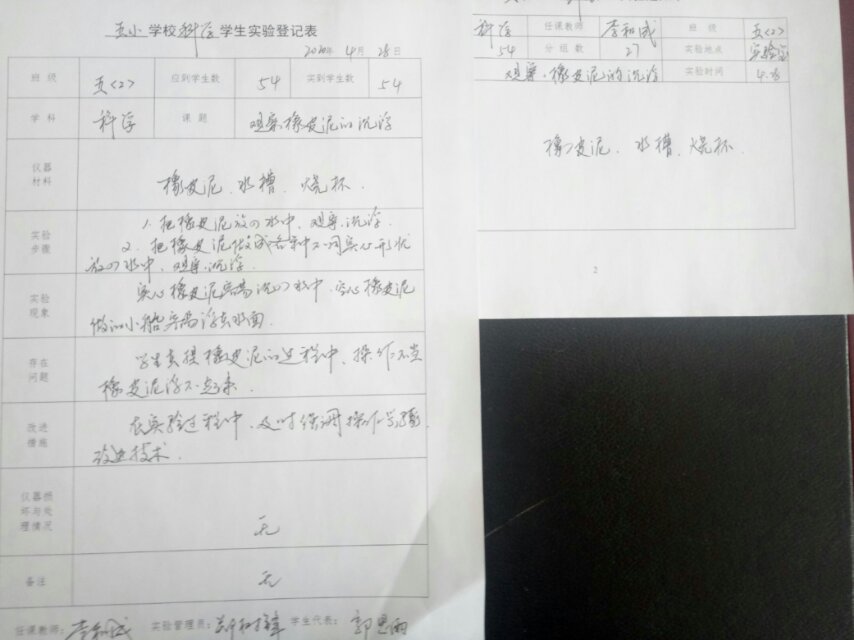 五小学校科学学生实验登记表
2020年4月28日
班级 五<2> 应到学生数 54 实到学生数 54
学科 科学 课题 观察橡皮泥的沉浮
仪器材料 橡皮泥、水槽、烧杯.
实验步骤 1. 把橡皮泥放入水中、观察沉浮.
2. 把橡皮泥做成各种不同实心形状
放入水中、观察沉浮.
实验现象 实心橡皮泥容易沉入水中,空心橡皮泥
做的小船容易浮在水面.
存在问题 学生在捏橡皮泥的过程中、操作不当
橡皮泥浮不起来.
改进措施 在实验过程中、及时强调操作步骤
改进技术.
仪器损坏与处理情况 无
备注 无
任课教师: 李和成 实验管理员: 学生代表:
科学 任课教师 李和成 班级 五<2>
54 分组数 27 实验地点 实验室
观察橡皮泥的沉浮 实验时间
橡皮泥、水槽、烧杯
2